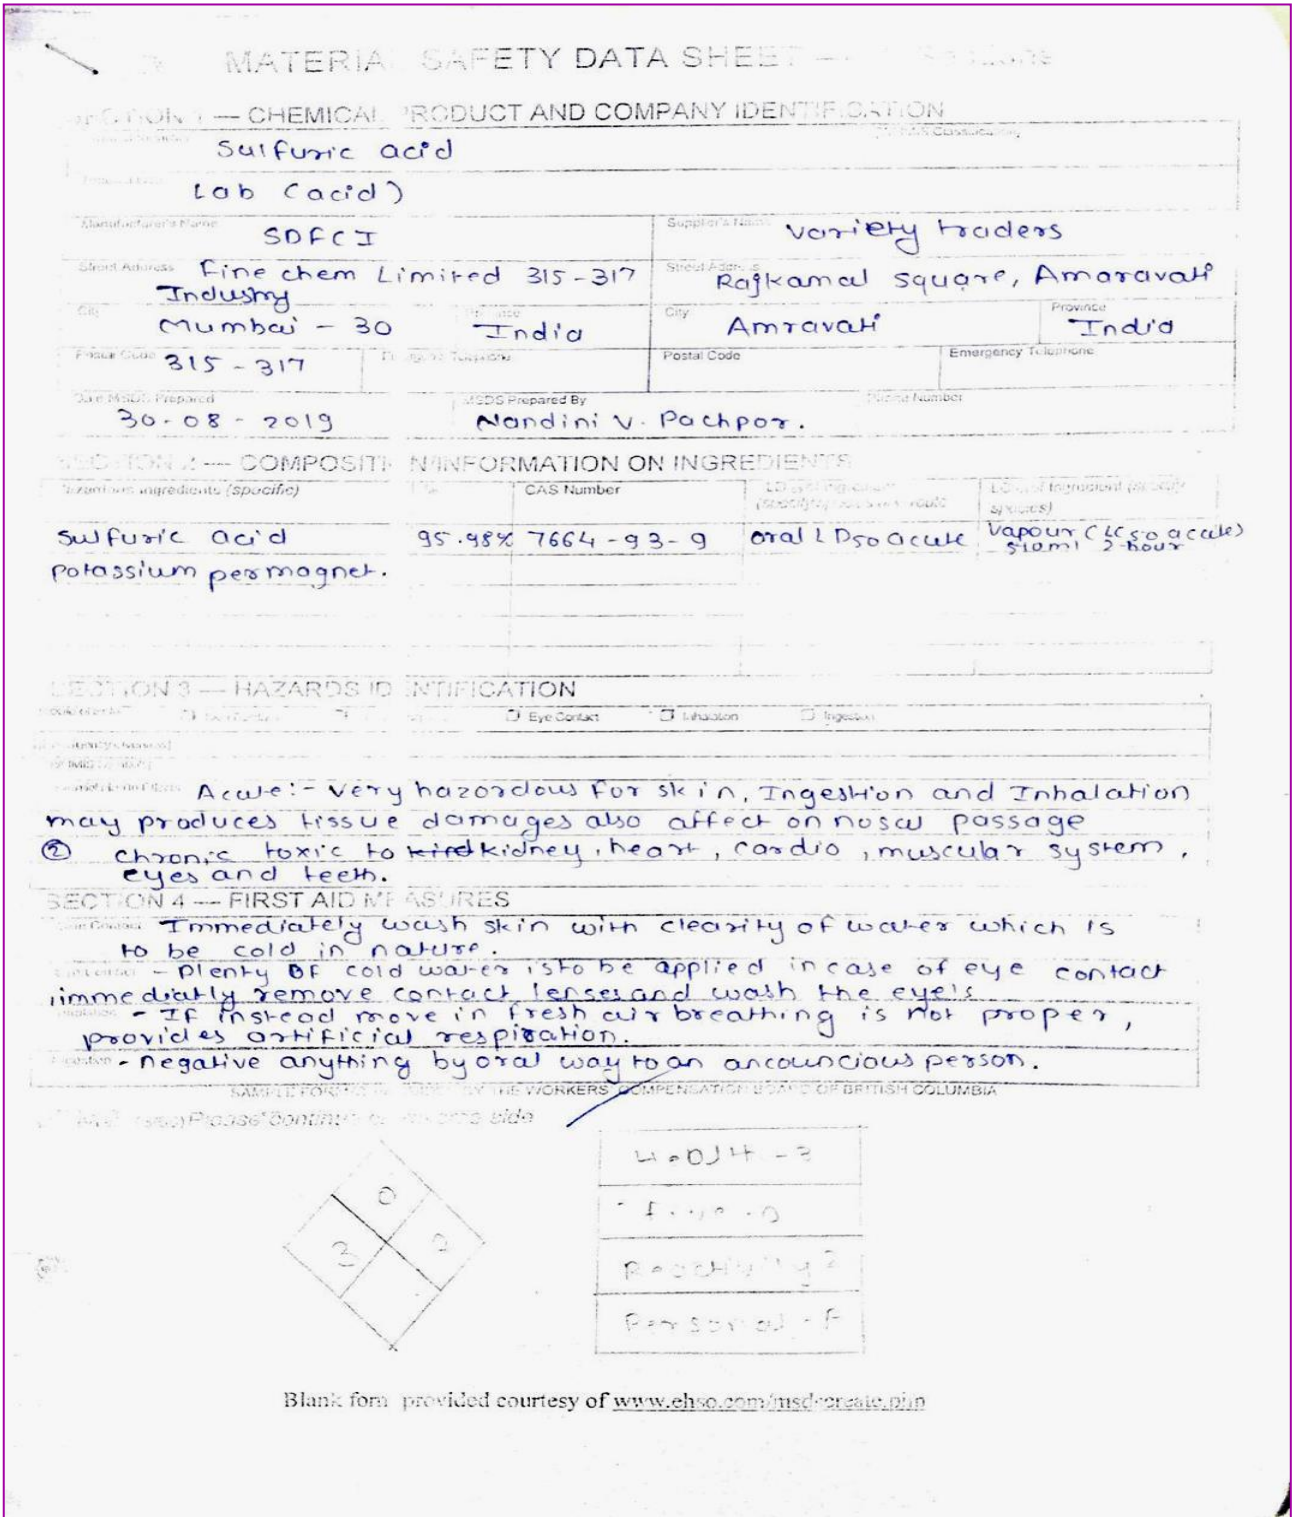 MATERIAL SAFETY DATA SHEET —
SECTION 1 — CHEMICAL PRODUCT AND COMPANY IDENTIFICATION
Sulfuric acid
Lab (acid)
Manufacturer's Name SDFCI Supplier's Name Variety traders
Street Address Fine chem Limited 315-317 Street Address Rajkamal square, Amaravati
Industry
City Mumbai - 30 India City Amravati Province India
Postal Code 315-317 Postal Code Emergency Telephone
Date MSDS Prepared MSDS Prepared By Phone Number
30-08-2019 Nandini V. Pachpor.
SECTION 2 — COMPOSITION/INFORMATION ON INGREDIENTS
Hazardous Ingredients (specific) % CAS Number
Sulfuric acid 95.98% 7664-93-9 oral LD50 acute Vapour (LC50 acute)
510ml 2-hour
potassium permagnet.
SECTION 3 — HAZARDS IDENTIFICATION
Eye Contact Inhalation Ingestion
Acute:- very hazordous for skin, Ingestion and Inhalation
may produces tissue damages also affect on nosal passage
② chronic toxic to kidney, heart, cardio, muscular system,
eyes and teeth.
SECTION 4 — FIRST AID MEASURES
Immediately wash skin with clearity of water which is
to be cold in nature.
- Plenty OF cold water is to be applied incase of eye contact
, immediatly remove contact lenses and wash the eye's
- If instead move in fresh air breathing is not proper,
provides artificial respiration.
- negative anything by oral way to an ancouncious person.
SAMPLE BY THE WORKERS' COMPENSATION BOARD OF BRITISH COLUMBIA
Please continue side
0
3 2
Health - 3
Reactivity 2
Personal - F
Blank form provided courtesy of www.ehso.com/msdscreate.php